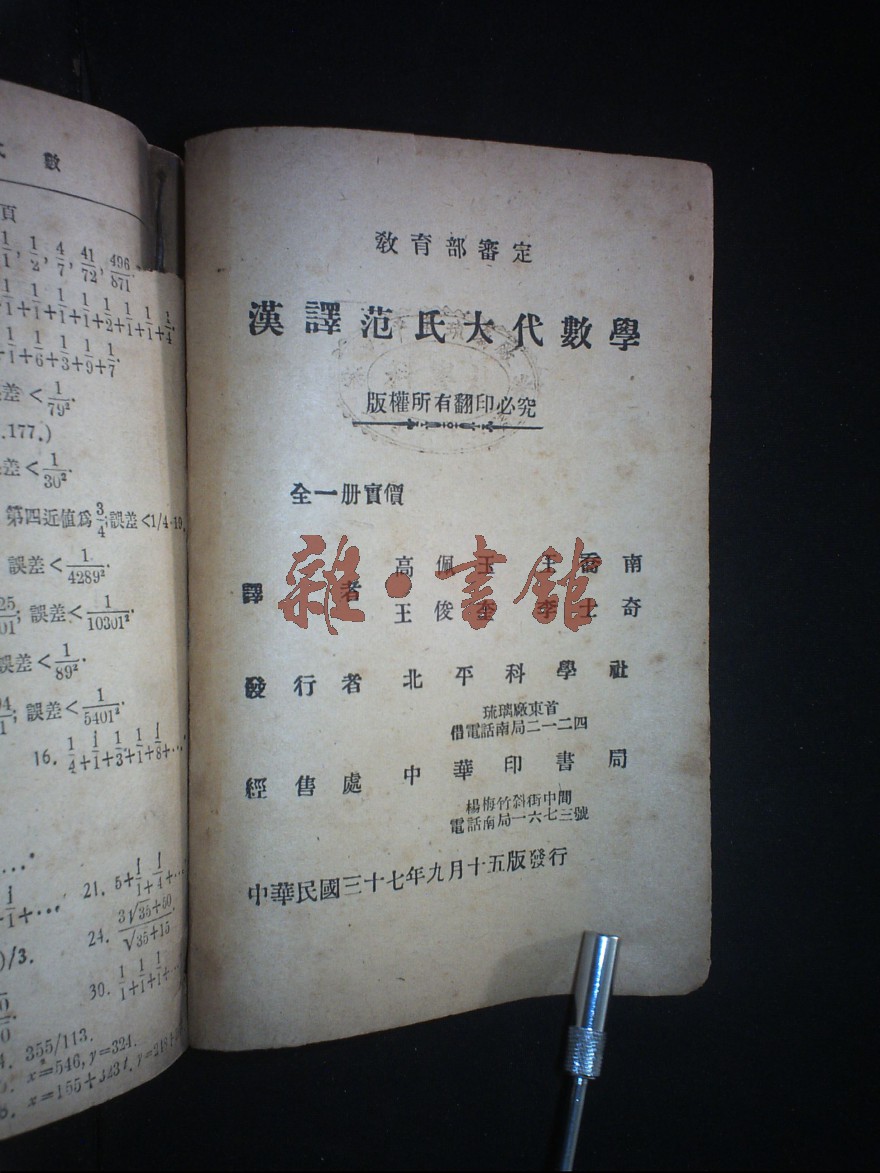 數
頁
1/1, 1/2, 4/7, 41/72, 496/871.
1/1+1/1+1/1+1/1+1/2+1/1+1/1+1/4.
+1/1+1/6+1/3+1/9+1/7.
差<1/79².
.177.)
差<1/30².
第四近值爲3/4;誤差<1/4·19.
誤差<1/4289².
誤差<1/10301².
誤差<1/89².
誤差<1/5401².
16. 1/4+1/1+1/3+1/1+1/8+…
21. 5+1/1+1/4+…
24. 3√35+50/√35+15.
)/3.
30. 1/1+1/1+1/1+…
355/113.
x=546, y=324.
教育部審定
漢譯范氏大代數學
版權所有翻印必究
全一册實價
譯者 高佩玉 王喬南
王俊奎 李士奇
發行者 北平科學社
琉璃廠東首
借電話南局二一二四
經售處 中華印書局
楊梅竹斜街中間
電話南局一六七三號
中華民國三十七年九月十五版發行
雜·書館